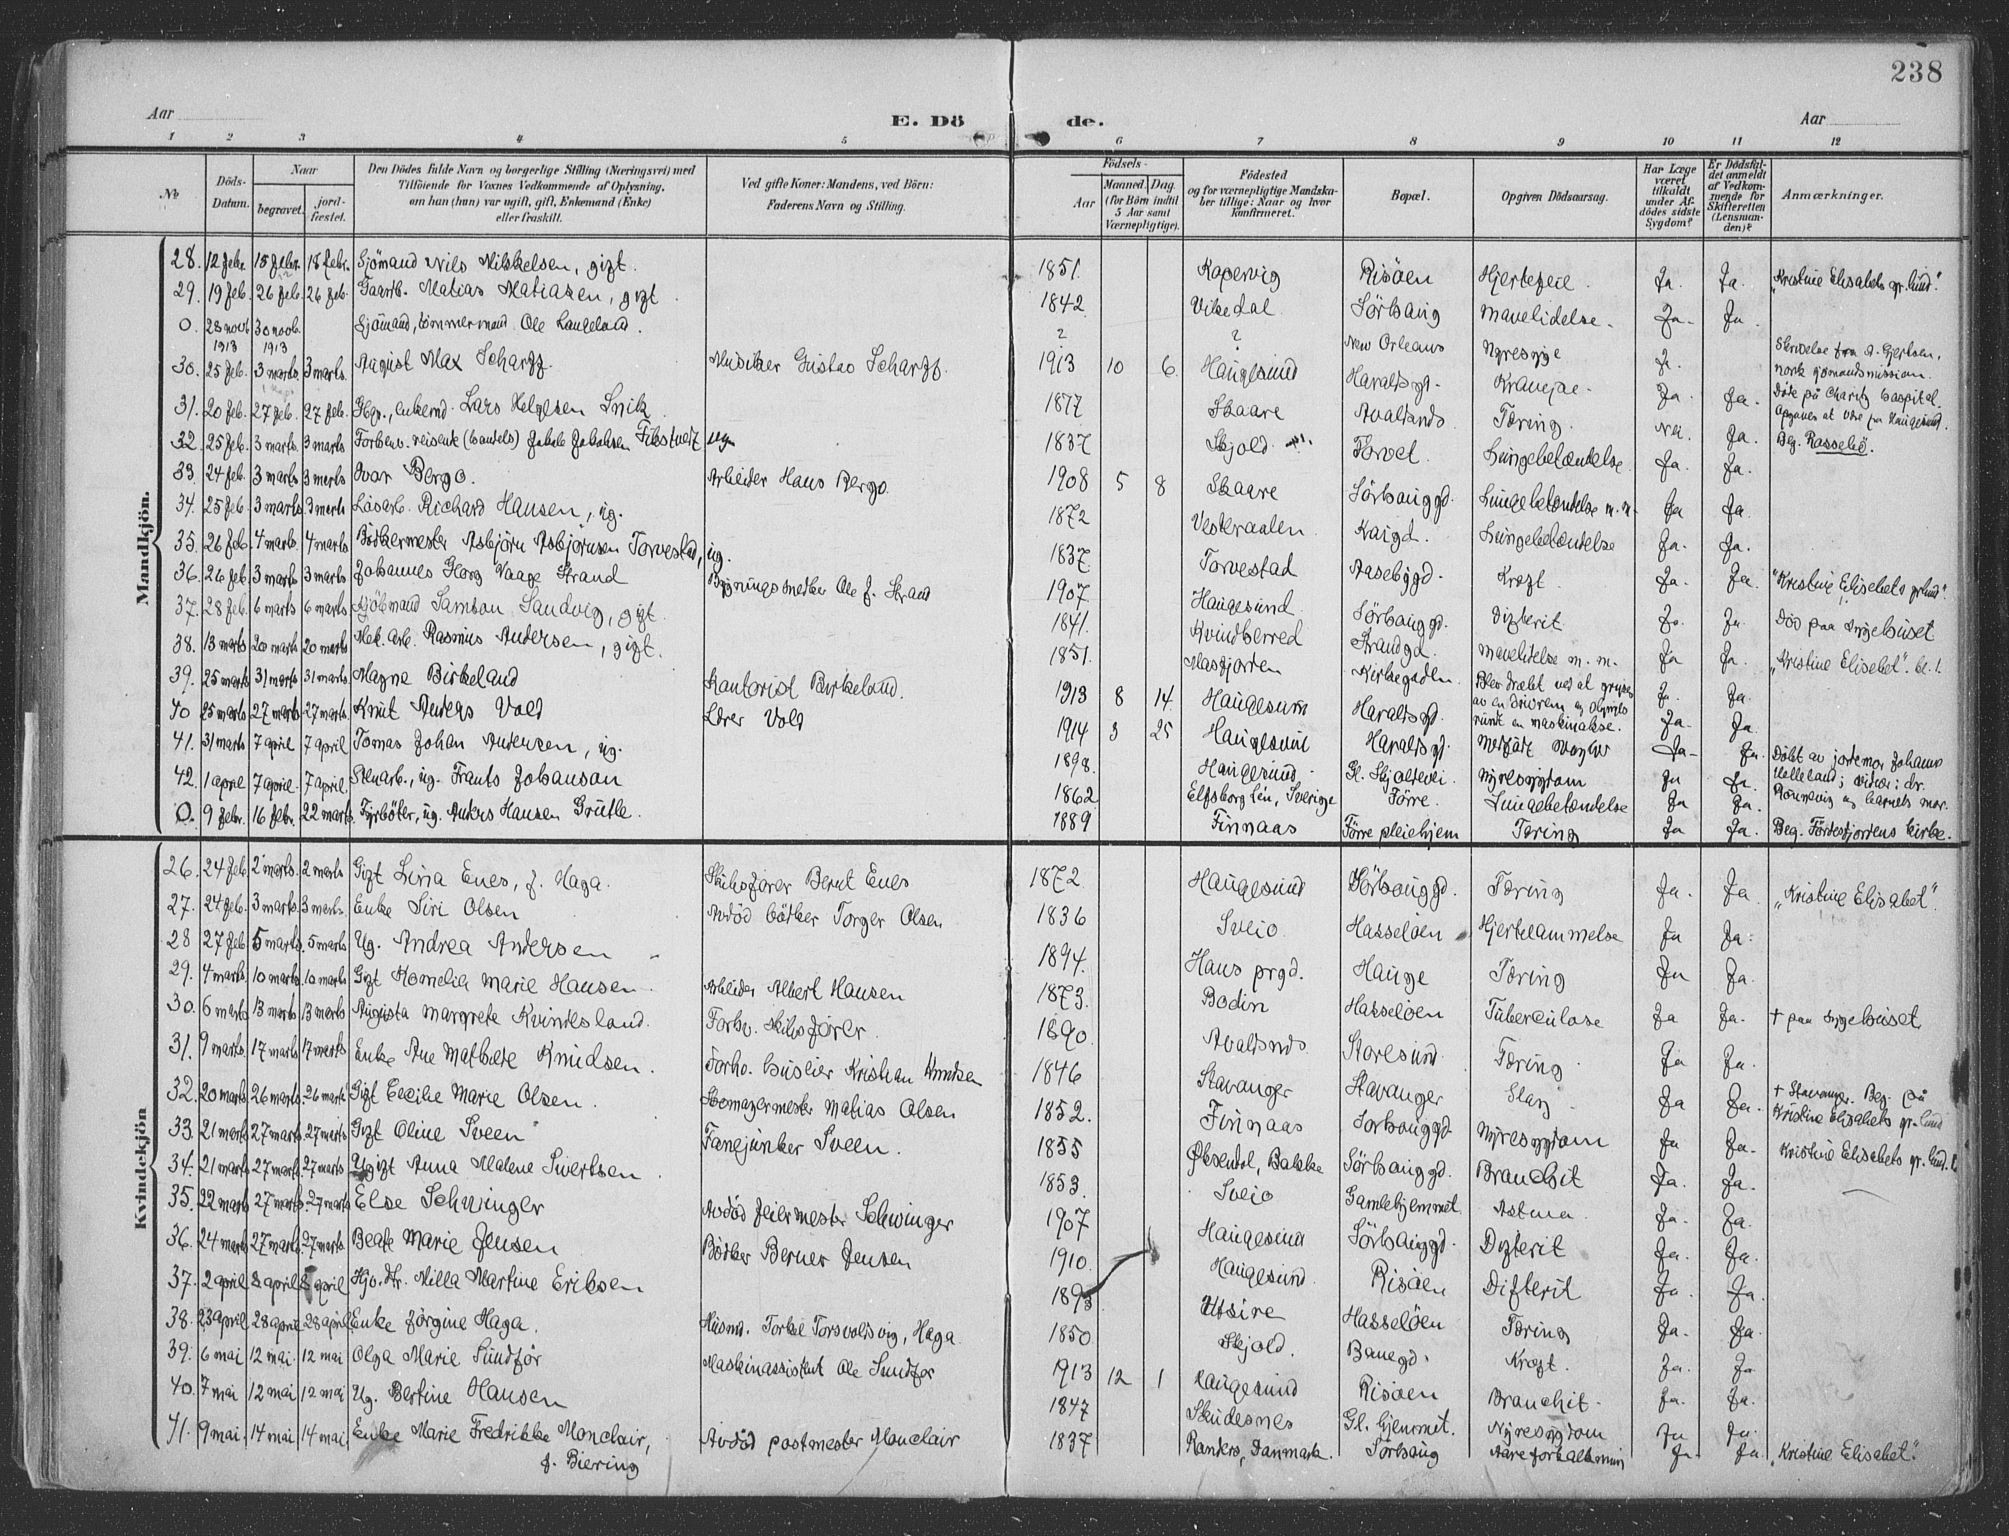 238
Aar
E. Dö de.
Aar
1 2 3 4 5 6 7 8 9 10 11 12
No
Döds-Datum.
Naar
begravet.
jord-fæstet.
Den Dödes fulde Navn og borgerlige Stilling (Næringsvei) med Tilföiende for Voxnes Vedkommende af Oplysning, om han (hun) var ugift, gift, Enkemand (Enke) eller fraskilt.
Ved gifte Koner: Mandens, ved Börn: Faderens Navn og Stilling.
Födsels-
Aar
Maaned. Dag.
(for Börn indtil 5 Aar samt Værnepligtige).
Födested og for værnepligtige Mandskaber tillige: Naar og hvor konfirmeret.
Bopæl.
Opgiven Dödsaarsag.
Har Læge været tilkaldt under Afdödes sidste Sygdom?
Er Dödsfaldet anmeldt af Vedkommende for Skifteretten (Lensmanden)?
Anmærkninger.
Mandkjön.
28. 12 febr. 18 febr. 18 febr. Sjömand Nils Mikkelsen, gift. 1851. Kopervig Risöen Hjertefeil. Ja. Ja. "Kristine Elisabets gr.lund".
29. 19 feb. 26 feb. 26 feb. Gaarb. Matias Matiasen, gift. 1842 Vikedal Sörhaug Mavelidelse. Ja. Ja.
0. 28 novb. 1913 30 novb. 1913 Sjömand, tömmermand Ole Langeland. ? ? New Orleans Nyresyge Ja. Skrivelse fra A. Gjertsen, norsk sjömandsmission. Döde på Charity hospital. Opgaves at være fra Haugesund.
30. 25 feb. 3 marts. 3 marts. August Max Scharff. Musiker Gustav Scharff. 1913 10 6 Haugesund Haraldsgt. Krampe. Ja. Ja.
31. 20 feb. 27 feb. 27 feb. Gbr., enkemd. Lars Helgesen Snik 1877 Skaare Avaldsnes Tæring. Nei. Ja. Beg. Rossebö.
32. 25 feb. 3 marts 3 marts Forhenv. reisende (handels) Jakob Jakobsen Fikstveit ug. 1837 Skjold Torvet Lungebetændelse. Ja. Ja.
33. 24 feb. 3 marts 3 marts Ivar Bergo. Arbeider Hans Bergo. 1908 5 8 Skaare Sörhauggd. Lungebetændelse m. m. Ja Ja.
34. 25 feb. 3 marts 3 marts Lösarb. Richard Hansen, ug. 1872 Vesteraalen Kaigd. Lungebetændelse Ja. Ja.
35. 26 feb. 4 marts. 4 marts. Bödkermester Asbjörn Asbjörnsen Torvestad, ug. 1837 Torvestad Aasebygd. Kræft. Ja. Ja. "Kristine Elisabets grlund".
36. 26 feb. 3 marts 3 marts Johannes Georg Vaage Strand Bygningsmester Ole J. Strand 1907 Haugesund. Sörhauggd. Difterit Ja. Ja. Död paa Sygehuset
37. 28 feb. 6 marts 6 marts Sjömand Samson Sandvig, gift. 1841. Kvindherred Strandgd. Mavelidelse m. m. Ja Ja. "Kristine Elisabet". kl. 1.
38. 13 marts 20 marts 20 marts Mek. arb. Rasmus Andersen, gift. 1851. Masfjorden Kirkegaden. Blev dræbt ved at gripes av en drivrem og slynges rundt en maskinakse. Ja. Ja.
39. 25 marts 31 marts 31 marts. Magne Birkeland Kontorist Birkeland. 1913 8 14 Haugesund Haraldsgd. Ja. Ja.
40 25 marts. 27 marts. 27 marts. Knut Anders Vold Lærer Vold 1914 3 25 Haugesund Haraldsgd. Medfödt Ja. Ja. Döbt av jordemor Johanne Helleland; vidner: dr. Rönnevig og barnets mor.
41. 31 marts 7 april 7 april Tomas Johan Andersen, ug. 1898. Haugesund. Gl. Skjoldevei. Nyresygdom Ja Ja.
42. 1 april 7 april. 7 april. Stenarb., ug. Frants Johanson 1862 Elfsborg Len, Sverige Förre. Lungebetændelse Ja Ja.
0. 9 febr. 16 febr. 22 marts. Fyrböter, ug. Anders Hansen Grütle. 1889 Finnaas Förre pleiehjem Tæring Ja Ja. Beg. Fördesfjordens kirke.
Kvindekjön
26. 24 feb. 2 marts. 2 marts Gift Lina Enes, f. Haga. Skibsförer Bernt Enes 1872. Haugesund Sörhauggd. Tæring Ja. Ja. "Kristine Elisabet".
27. 24 feb. 3 marts. 3 marts. Enke Siri Olsen Avdöd bödker Torger Olsen 1836 Sveio Hasseloen Hjertelammelse Ja Ja.
28 27 feb. 5 marts. 5 marts Ug. Andrea Andersen 1894. Haus prgd. Hauge Tæring Ja Ja.
29. 4 marts. 10 marts. 10 marts. Gift Kornelia Marie Hansen. Arbeider Albert Hansen 1873. Bodin Hasselöen Tuberculose Ja Ja. † paa Sygehuset
30. 6 marts 13 marts 13 marts Augusta Margrete Kvindesland. Forhv. Skibsförer. 1890. Avaldsnes Storesund. Tæring. Ja Ja.
31. 9 marts. 17 marts 17 marts Enke Ane Mathilde Knudsen. Forhv. buslier Kristian Knudsen 1846 Stavanger Stavanger Slag Ja Ja. † Stavanger. Beg. på Kristine Elisabets gr.lund
32. 20 marts 26 marts. 26 marts Gift Cecilie Marie Olsen. Skomagermester Matias Olsen 1852. Finnaas Sörhauggd Nyresygdom Ja Ja. Kristine Elisabets gr.lund.
33. 21 marts 27 marts. 27 marts. Gift Oline Sveen Fanejunker Sveen. 1855 Öksendal, Bakke Sörhauggd. Bronchit Ja. Ja.
34. 21 marts 27 marts. 27 marts. Ugift Anna Malene Sivertsen 1853. Sveio Gamlehjemmet. Astma. Ja. Ja.
35. 22 marts 27 marts. 27 marts Else Schwinger Avdöd feiermester Schwinger 1907 Haugesund Sörhauggd. Difterit Ja. Ja.
36. 24 marts 27 marts. 27 marts. Beate Marie Jensen Bödker Berner Jensen 1910. Haugesund. Risöen Difterit Ja. Ja.
37. 2 april 8 april 8 april Hjv. dtr. Milla Martine Eriksen 1893 Utsire Hasselöen Tæring Ja. Ja.
38. 23 april 28 april 28 april Enke Jörgine Haga. Husmd. Torkel Torsvoldsvig, Haga 1850 Skjold. Banegd. Kræft. Ja. Ja
39. 6 mai 12 mai. 12 mai Olga Marie Sundför Maskinassistent Ole Sundför 1913 12 1 Haugesund Risöen Bronchit. Ja. Ja.
40. 7 mai 12 mai 12 mai Ug. Bertine Hansen 1847 Skudesnes Gl. hjemmet. Nyresygdom Ja Ja.
41. 9 mai. 14 mai 14 mai Enke Marie Fredrikke Monclair, f. Biering Avdöd postmester Monclair 1837 Randers, Danmark. Sörhaug Aareforkalkning Ja. Ja "Kristine Elisabet".